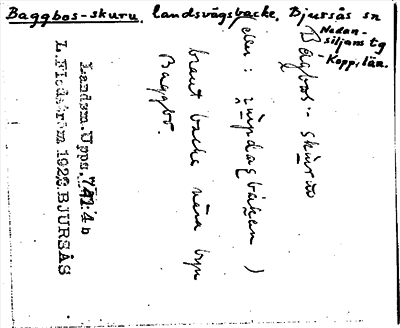 Baggbos-skuru, landsvägsbacke, Bjursås sn
Nedan-
siljans tg
Kopp. län.
Baggbos-skuru
eller:
brant backe nära byn
Baggbo.
Landsm. Upps. 741:4b
L. Flodström 1922. BJURSÅS